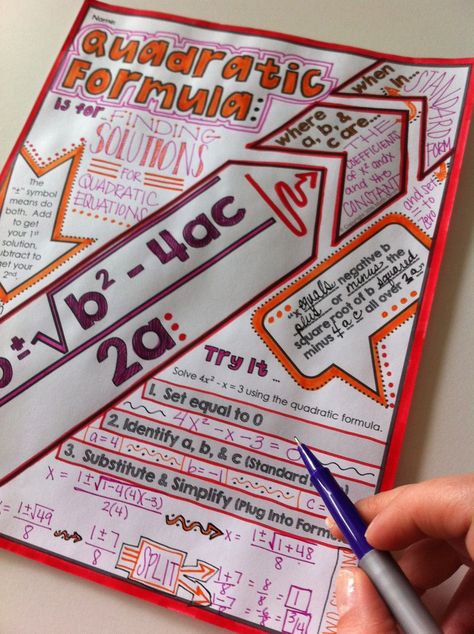 Name:
Quadratic
Formula:
is for...
FINDING
SOLUTIONS
FOR
QUADRATIC
EQUATIONS
where
a, b, &
c are...
THE
COEFFICIENTS
of x² and x
and the
CONSTANT
when
in...
STANDARD
FORM
and set
to
zero
The
"±" symbol
means do
both. Add
to get
your 1st
solution,
subtract to
get your
2nd.
b ± √b² - 4ac
2a
"x equals negative b
plus or minus the
square root of b squared
minus 4 a c all over 2 a"
Try It...
Solve 4x² - x = 3 using the quadratic formula.
1. Set equal to 0
4x² - x - 3 = 0
2. Identify a, b, & c (Standard
a = 4 b = -1 c =
3. Substitute & Simplify (Plug Into Form
x = 1 ± √1-4(4)(-3)
2(4)
x = 1 ± √1+48
8
1 ± √49
8
1 ± 7
8
SPLIT
1+7 = 8 = 1
8 8
1-7 = -6 = 3/4
8 8